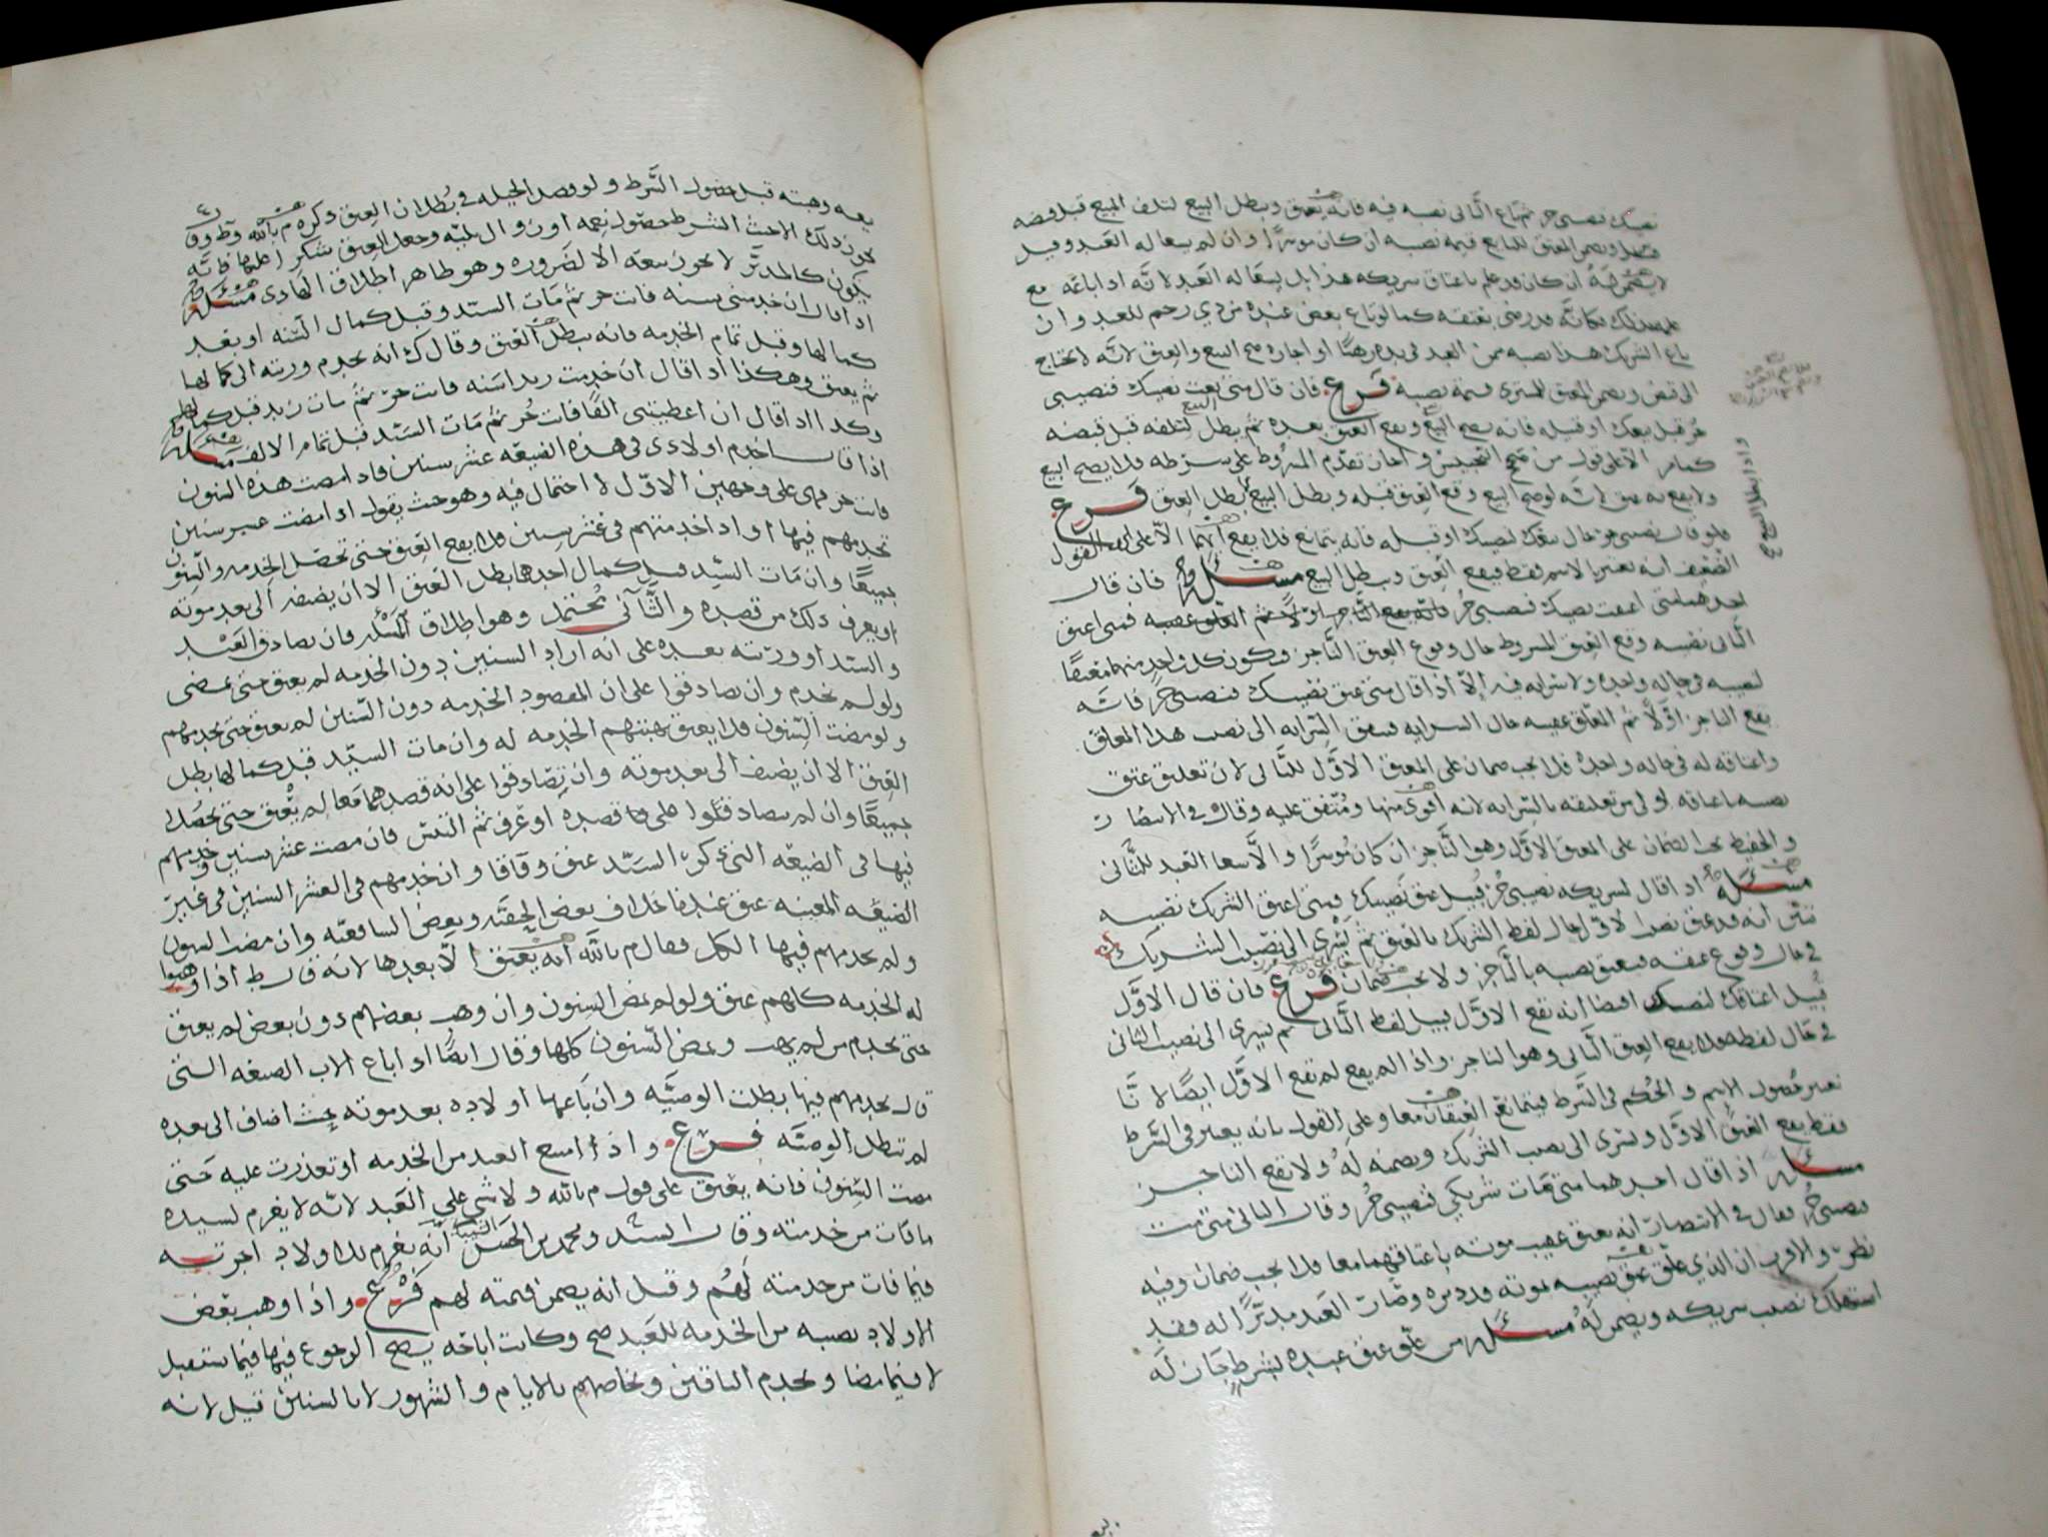 نصيبك فنصيبي حر ثم باع الثاني نصيبه فيه فانه يعتق وبطل البيع لتلف المبيع قبل قبضه
ويضمن المعتق للبايع قيمة نصيبه ان كان موسرا وان لم يسعا له العبد وقيل
ان كان قد علم باعتاق شريكه هذا بل يسعا له العبد لانه اذا باعه مع
علمه بذلك فكانه قد رضي بعتقه كما لو باع بعض عبده من ذي رحم للعبد وان
باع الشريك هذا نصيبه ممن العبد في يده رهنا او اجاره صح البيع والعتق لانه لا يحتاج
الى قبض ويضمن المعتق للمشتري قيمة نصيبه فرع فان قال متى بعت نصيبك فنصيبي
حر قبل بيعك او قبيله فانه يصح البيع ويقع العتق بعده ثم يبطل البيع لتلفه قبل قبضه
الا على قول من تقدم المشروط على شرطه فلا يصح البيع
ولا يقع به عتق لانه لو صح البيع وقع العتق قبله وبطل البيع بطل العتق فرع
فلو قال نصيبي حر حال بيعك لنصيبك او قبله فانه يتمانع فلا يقع ايهما الا على القول
الضعيف انه يعتبر بالاسم فقط فيقع العتق وبطل البيع مسئله فان قال
احدهما متى اعتقت نصيبك فنصيبي حر فانه يقع الناجز اولا ثم المعلق عقيبه فمتى اعتق
الثاني نصيبه وقع العتق المشروط حال وقوع العتق الناجز ويكون كل واحد منهما معتقا
لنصيبه في حاله واحده ولا سرايه فيه الا اذا قال متى عتق نصيبك فنصيبي حر فانه
يقع الناجز اولا ثم المعلق عقيبه حال السرايه فسبق السرايه الى نصيب هذا المعلق
واعتاقه له في حاله واحده فلا يجب ضمان على المعتق الاول للثاني لان تعليق عتق
نصيبه باعتاقه اولى من تعليقه بالسرايه لانه اقوى منها ومتفق عليه وقال في الانتصار
والحفيظ يجب الضمان على المعتق الاول وهو الناجز ان كان موسرا والا سعا العبد للثاني
مسئله اذا قال لشريكه نصيبي حر قبيل عتق نصيبك فمتى اعتق الشريك نصيبه
تبين انه قد عتق نصيب الاول حال لفظ الشريك بالعتق ثم يسري الى نصيب الشريك
في حال وقوع عتقه فيعتق نصيبه بالناجز ولا يجب ضمان فرع فان قال الاول
قبيل اعتاقك لنصيبك ايضا انه يقع الاول قبيل لفظ الثاني ثم يسري الى نصيب الثاني
في حال لفظه فلا يقع العتق الثاني وهو الناجز واذا لم يقع لم يقع الاول ايضا لانا
نعتبر حصول الاسم والحكم في الشرط فيتمانع العتقان معا وعلى القول بانه يعتبر في الشرط
فقط يقع العتق الاول ويسري الى نصيب الشريك ويضمنه له ولا يقع الناجز
مسئله اذا قال احدهما متى مات شريكي فنصيبي حر وقال الثاني متى مت
فنصيبي حر فقال في الانتصار انه يعتق عقيب موته باعتاقهما معا فلا يجب ضمان وفيه
نظر والاقرب ان الذي علق عتق نصيبه بموته قد دبره وصار العبد مدبرا له فقد
استهلك نصيب شريكه ويضمن له مسئله من علق عتق عبده بشرط جاز له
بيعه وهبته قبل حصول الشرط ولو قصد الحيله في بطلان العتق ذكره م بالله وط وق
يجوز ذلك الا حيث الشرط حصول نعمه او زوال بليه وجعل العتق شكرا عليها فانه
يكون كالمدبر لا يجوز بيعه الا لضروره وهو ظاهر اطلاق الهادي مسئله
اذا قال ان خدمتني سنه فانت حر ثم مات السيد وقبل كمال السنه او بعد
كمالها وقبل تمام الخدمه فانه يبطل العتق وقال ك انه يخدم ورثته الى كمالها
ثم يعتق وهكذا اذا قال ان خدمت زيدا سنه فانت حر ثم مات زيد قبل كمالها
وكذا اذا قال ان اعطيتني الفا فانت حر ثم مات السيد قبل تمام الالف مسئله
اذا قال اخدم اولادي في هذه الضيعه عشر سنين فاذا مضت هذه السنون
فانت حر فهي على وجهين الاول لا احتمال فيه وهو حيث يقول اذا مضت عشر سنين
تخدمهم فيها او اذا خدمتهم في عشر سنين فلا يقع العتق حتى تحصل الخدمه والسنون
جميعا وان مات السيد قبل كمال احدهما بطل العتق الا ان يضيفه الى بعد موته
او يعرف ذلك من قصده والثاني محتمل وهو اطلاق المسئله فان تصادق العبد
والسيد او ورثته بعده على انه اراد السنين دون الخدمه لم يعتق حتى تمضي
ولو لم يخدم وان تصادقوا على ان المقصود الخدمه دون السنين لم يعتق حتى يخدمهم
ولو مضت السنون فلا يعتق بهبتهم الخدمه له وان مات السيد قبل كمالها بطل
العتق الا ان يضيف الى بعد موته وان تصادقوا على انه قصدهما معا لم يعتق حتى يحصلا
جميعا وان لم يتصادقوا على ما قصده او عرف ثم التبس فان مضت عشر سنين وخدمهم
فيها في الضيعه التي ذكر السيد عتق وفاقا وان خدمهم في العشر السنين في غير
الضيعه المعينه عتق عندنا خلاف بعض الحنفيه وبعض الشافعيه وان مضت السنون
ولم يخدمهم فيها الكل فقال م بالله انه يعتق الا بعدها لانه قال ط اذا وهبوا
له الخدمه كلهم عتق ولو لم تمض السنون وان وهب بعضهم دون بعض لم يعتق
حتى يخدم من لم يهب وتمض السنون كلها وقال ايضا اذا باع الاب الضيعه التي
قال يخدمهم فيها بطلت الوصيه وان باعها اولاده بعد موته حيث اضاف الى بعده
لم تبطل الوصيه فرع واذا امتنع العبد من الخدمه او تعذرت عليه حتى
مضت السنون فانه يعتق على قول م بالله ولا شي على العبد لانه لا يغرم لسيده
ما فات من خدمته وقال السيد ومحمد بن الحسن الشيباني انه يغرم للاولاد اجرته
فيما فات من خدمته لهم وقيل انه يضمن قيمته لهم فرع واذا وهب بعض
الاولاد نصيبه من الخدمه للعبد صح وكانت اباحه يصح الرجوع فيها فيما يستقبل
لا فيما مضا ويخدم الباقين ويحاصهم بالايام والشهور لا بالسنين قيل لانه